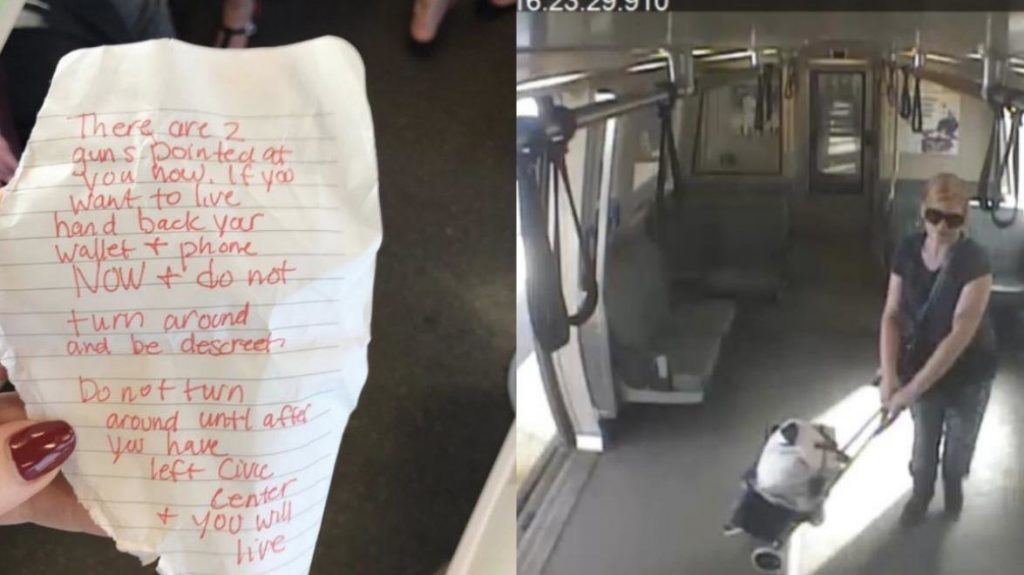 There are 2
guns pointed at
you now. If you
want to live
hand back your
wallet + phone
NOW + do not
turn around
and be descreet
Do not turn
around until after
you have
left Civic
Center
+ you will
live
16.23.29.910